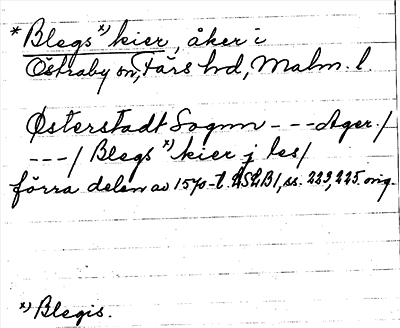 *Blegs x) kier, åker i
Östraby sn, Färs hd, Malm. l.
Østerstadt Sognn - - - Ager /
- - - / Blegs x) kier j les /
förra delen av 1570-t. LSLB 1, ss. 223, 225. orig.
x) Blegis.